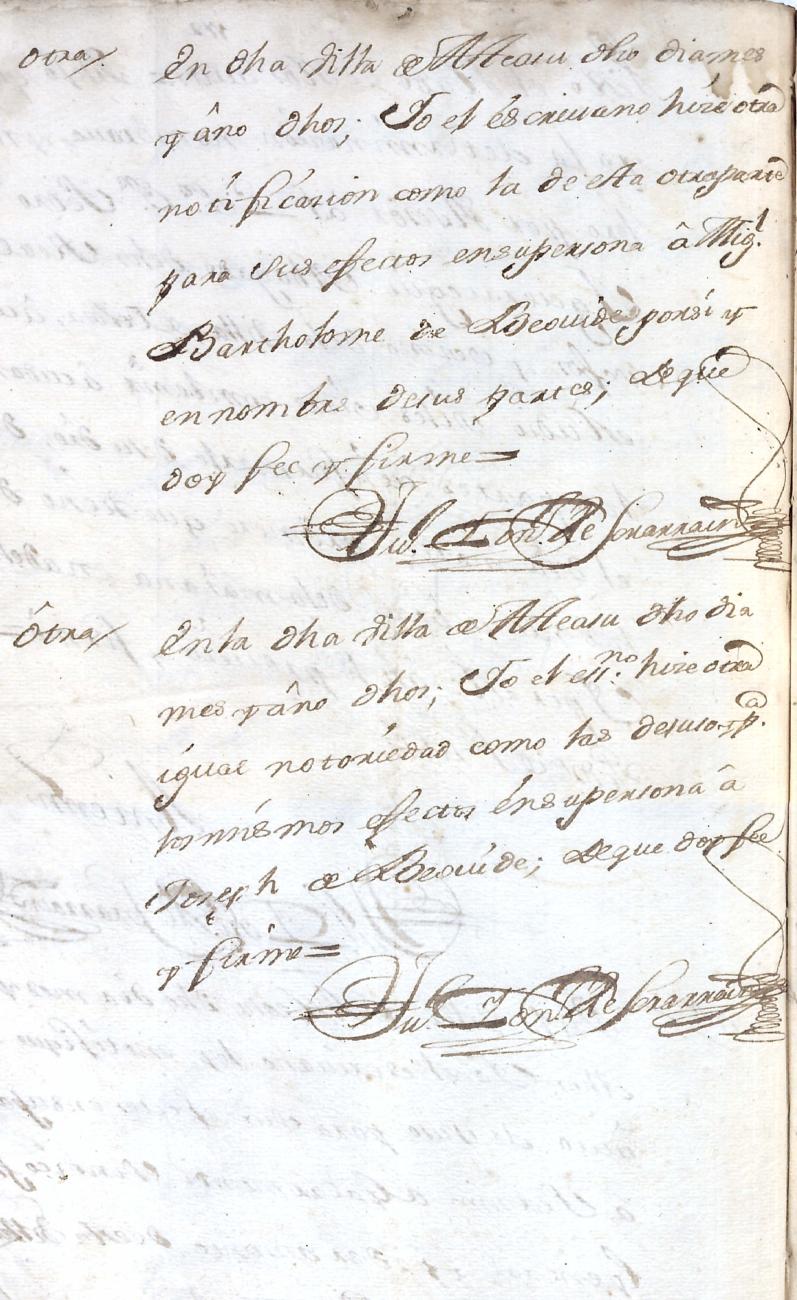 otra
En dha Villa de Atteasu dho dia, mes
y año dhos; Yo el escriuano hize otra
notificacion como la de esta otra parte
para sus efectos en supersona â Mig.l
Bartholome de Beouide por si y
en nombre de sus partes; de que
doy fee y firme =
Otra
En la dha Villa de Atteasu dho dia
mes y año dhos; Yo el ess.no hize otra
igual notoriedad como las de suso p.a
los mismos efectos en supersona â
Joseph de Beouide; de que doy fee
y firme =